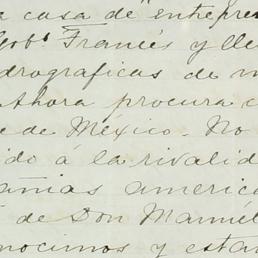 a casa de "entrepre
Gob.º Francés y lle
drograficas de m
Ahora procura c
e de México. No
ido á la rivalid
añias americ
de Don Manuel
nocimos y estan